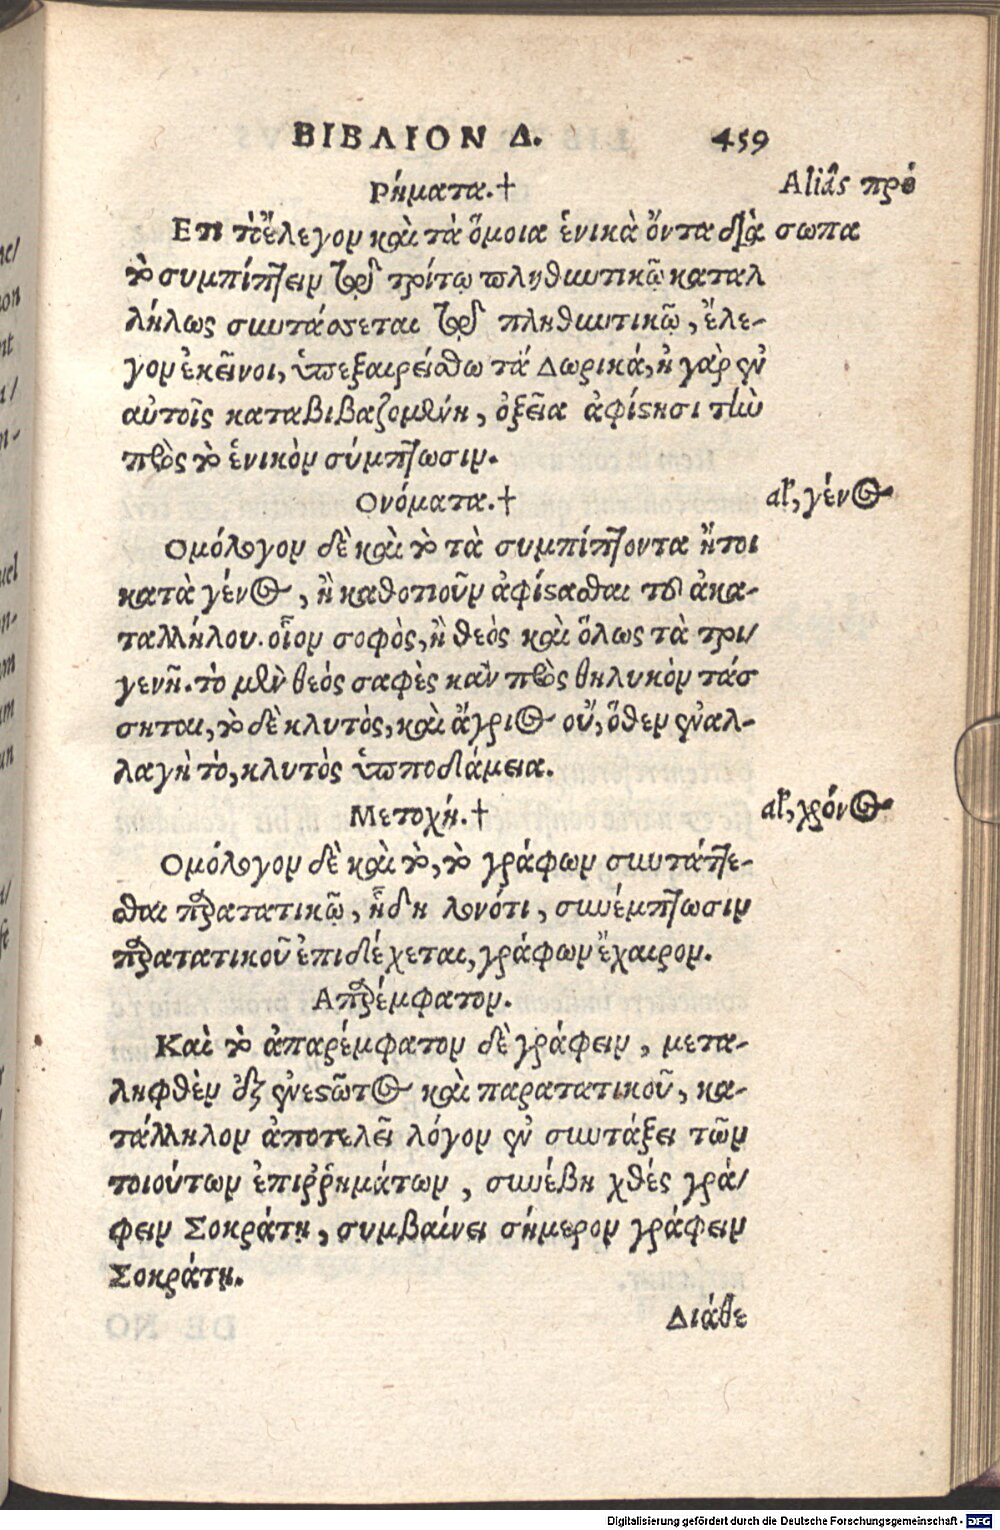 ΒΙΒΛΙΟΝ Δ. 459
Ρήματα.† Aliâs πρό
Ετι τὸ ἔλεγον καὶ τὰ ὅμοια ἑνικὰ ὄντα διὰ σωπα
τὸ συμπίπτειν τῷ τρίτῳ πληθυντικῷ καταλ
λήλως συντάσσεται τῷ πληθυντικῷ, ἔλε-
γον ἐκεῖνοι, ὑπεξαιρείσθω τὰ Δωρικά, ἡ γὰρ ἐν
αὐτοῖς καταβιβαζομένη, ὀξεῖα ἀφίστησι τὴν
πρὸς τὸ ἑνικὸν σύμπτωσιν.
Ονόματα.† al', γένος
Ομόλογον δὲ καὶ τὸ τὰ συμπίπτοντα ἤτοι
κατὰ γένος, ἢ καθοτιοῦν ἀφίστασθαι τοῦ ἀκα-
ταλλήλου. οἷον σοφὸς, ἢ θεὸς καὶ ὅλως τὰ τρι/
γενῆ. τὸ μὲν θεός σαφὲς κἂν πρὸς θηλυκὸν τάσ
σηται, τὸ δὲ κλυτὸς, καὶ ἄγριος οὔ, ὅθεν ἐναλ-
λαγὴ τὸ, κλυτὸς ἱπποδάμεια.
Μετοχή.† al', χρόνος
Ομόλογον δὲ καὶ τὸ, τὸ γράφων συντάττε-
σθαι παρατατικῷ, ἤδη λονότι, συνέμπτωσιν
παρατατικοῦ ἐπιδέχεται, γράφων ἔχαιρον.
Απαρέμφατον.
Καὶ τὸ ἀπαρέμφατον δὲ γράφειν, μετα-
ληφθὲν ἐξ ἐνεστῶτος καὶ παρατατικοῦ, κα-
τάλληλον ἀποτελεῖ λόγον ἐν συντάξει τῶν
τοιούτων ἐπιῤῥημάτων, συνέβη χθές γρά/
φειν Σοκράτη, συμβαίνει σήμερον γράφειν
Σοκράτη.
Διάθε
Digitalisierung gefördert durch die Deutsche Forschungsgemeinschaft - DFG